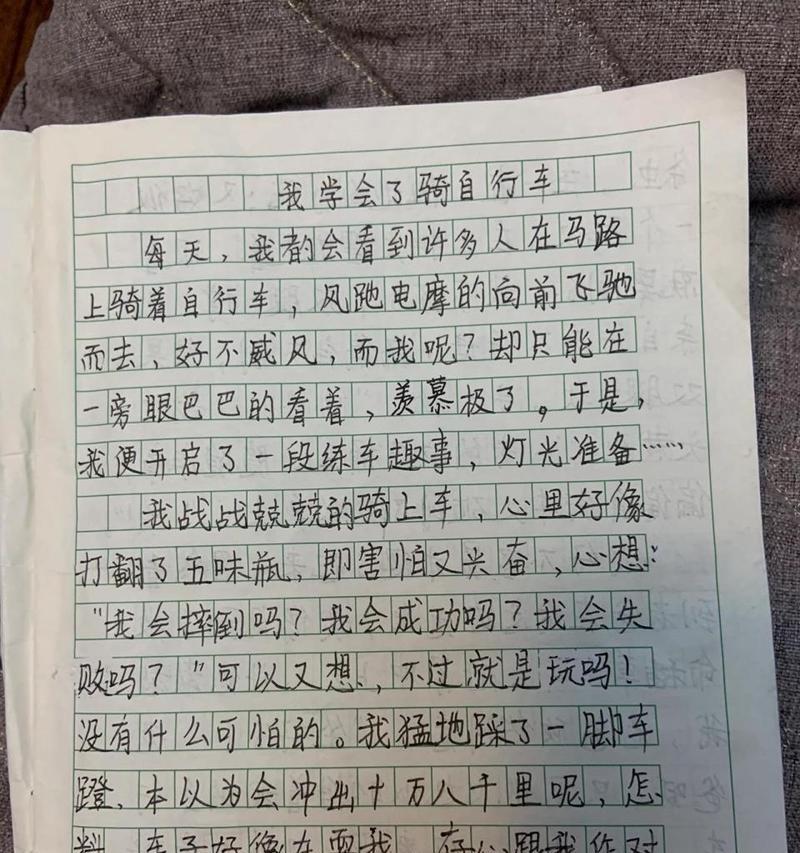 我学会了骑自行车
每天，我都会看到许多人在马路
上骑着自行车，风跑电摩的向前飞驰
而去，好不威风，而我呢？却只能在
一旁眼巴巴的看着，羡慕极了。于是，
我便开启了一段练车趣事，灯光准备……
我战战兢兢的骑上车，心里好像
打翻了五味瓶，即害怕又兴奋，心想：
“我会摔倒吗？我会成功吗？我会失
败吗？”可以又想，不过就是玩吗！
没有什么可怕的。我猛地踩了一脚车
蹬，本以为会冲出十万八千里呢，怎
料，车子好像在耍我，存心跟我作对